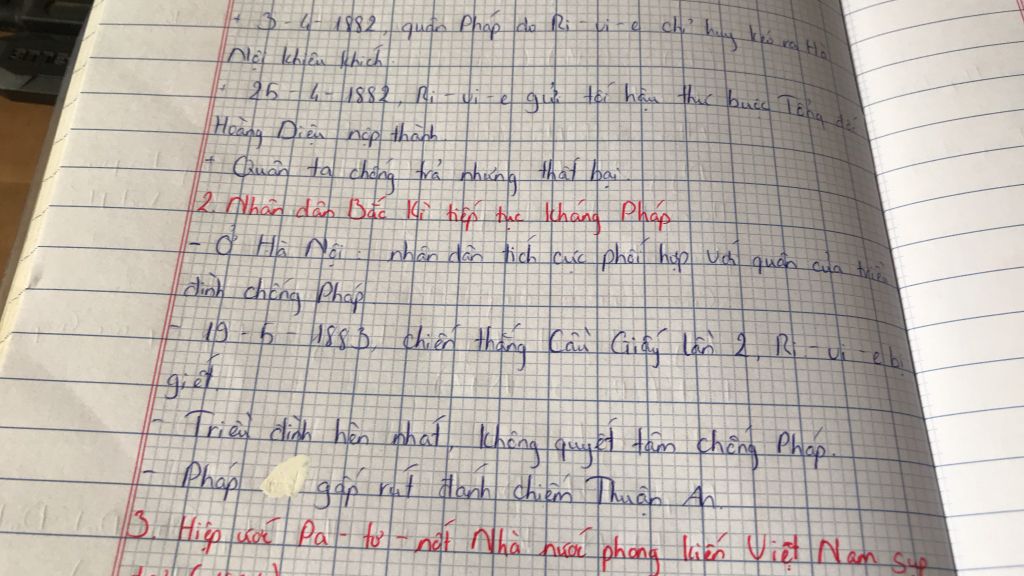 + 3-4-1882, quân Pháp do Ri-vi-e chỉ huy kéo ra Hà
Nội khiêu khích.
+ 25-4-1882, Ri-vi-e gửi tối hậu thư buộc Tổng đốc
Hoàng Diệu nộp thành.
+ Quân ta chống trả nhưng thất bại.
2. Nhân dân Bắc Kì tiếp tục kháng Pháp
- Ở Hà Nội: nhân dân tích cực phối hợp với quân của triều
đình chống Pháp
- 19-5-1883, chiến thắng Cầu Giấy lần 2, Ri-vi-e bị
giết.
- Triều đình hèn nhát, không quyết tâm chống Pháp.
- Pháp gấp rút đánh chiếm Thuận An.
3. Hiệp ước Pa-tơ-nốt Nhà nước phong kiến Việt Nam sụp